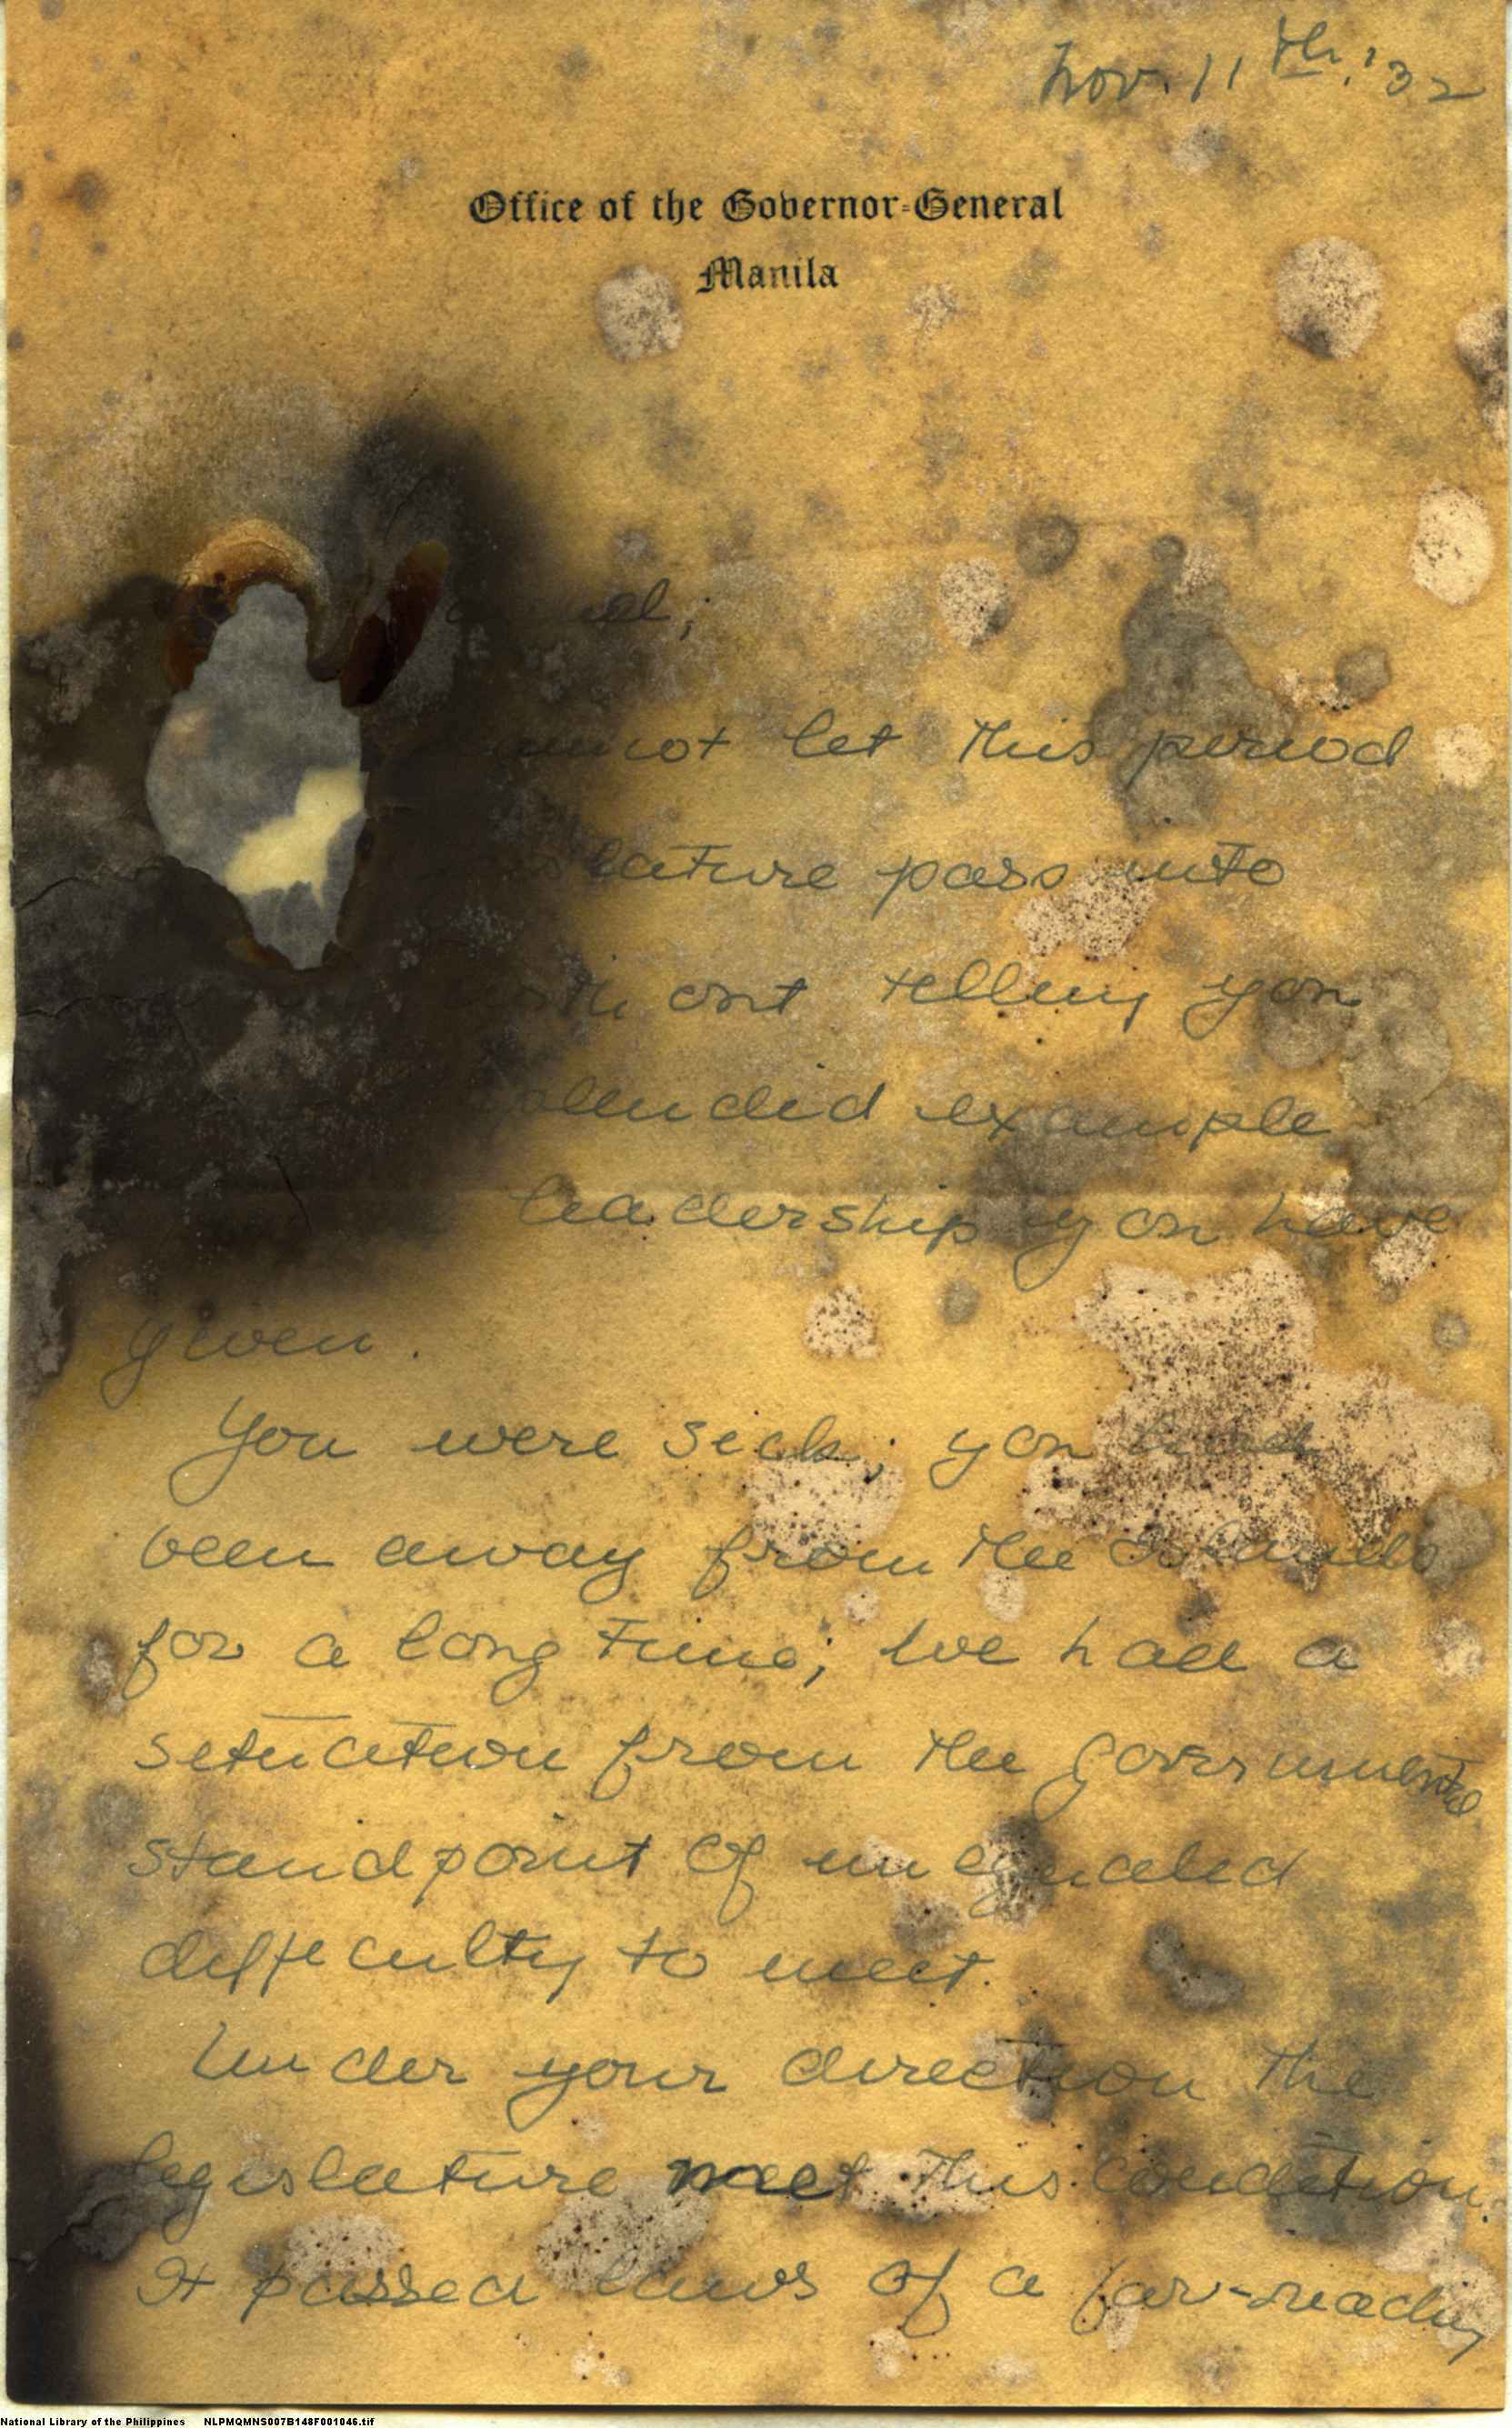 Nov. 11th, '32
Office of the Governor-General
Manila
let this period
pass into
telling you
example
leadership you have
given.
You were sick; you had
been away from the Islands
for a long time; we had a
situation from the governmental
standpoint of unequaled
difficulty to meet.
Under your direction the
legislature meet this condition.
It passed laws of a far-reaching
National Library of the Philippines NLPMQMNS007B148F001046.tif